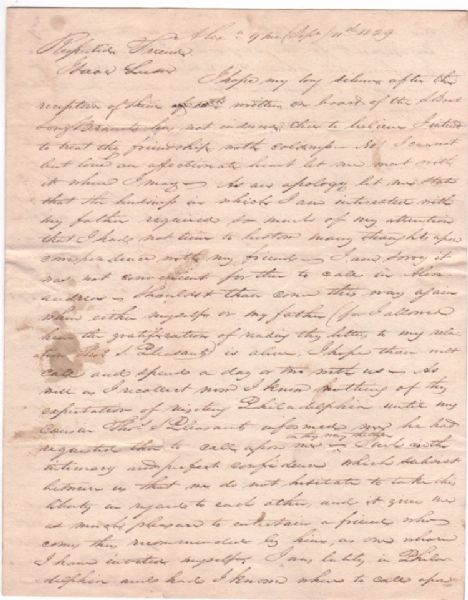 Alex.ª 9 mo (Sept) 11th 1829
Respected Friend
Isaac
I hope my long silence after the
reception of thine of written on board of the Steam
Long Branch has not induced thee to believe I intend
to treat thy friendship with coldness. No! I cannot
but love an affectionate heart let me meet with
it where I may. As an apology let me state
that the business in which I am interested with
my father required so much of my attention
that I had not time to bestow many thoughts upon
correspondence with my friend. I am sorry it
was not convenient for thee to call in Alex
andria. Shouldst thou come this way again
when either myself or my father (for I allowed
him the gratification of reading thy letter to my rela
tion Thos. S. Pleasants) is alive, I hope thou wilt
call and spend a day or two with us. As
well as I recollect now I knew nothing of thy
expectation of visiting Philadelphia until my
Cousin Thos. S. Pleasants informed me he had
requested thee to call upon me on thy way thither
intimacy and perfect confidence which subsist
between us that we do not hesitate to take this
liberty in regard to each other, and it gives me
as much pleasure to entertain a friend who
comes thus recommended by him, as one whom
I have invited myself. I was lately in Phila
delphia and had I known where to call upon